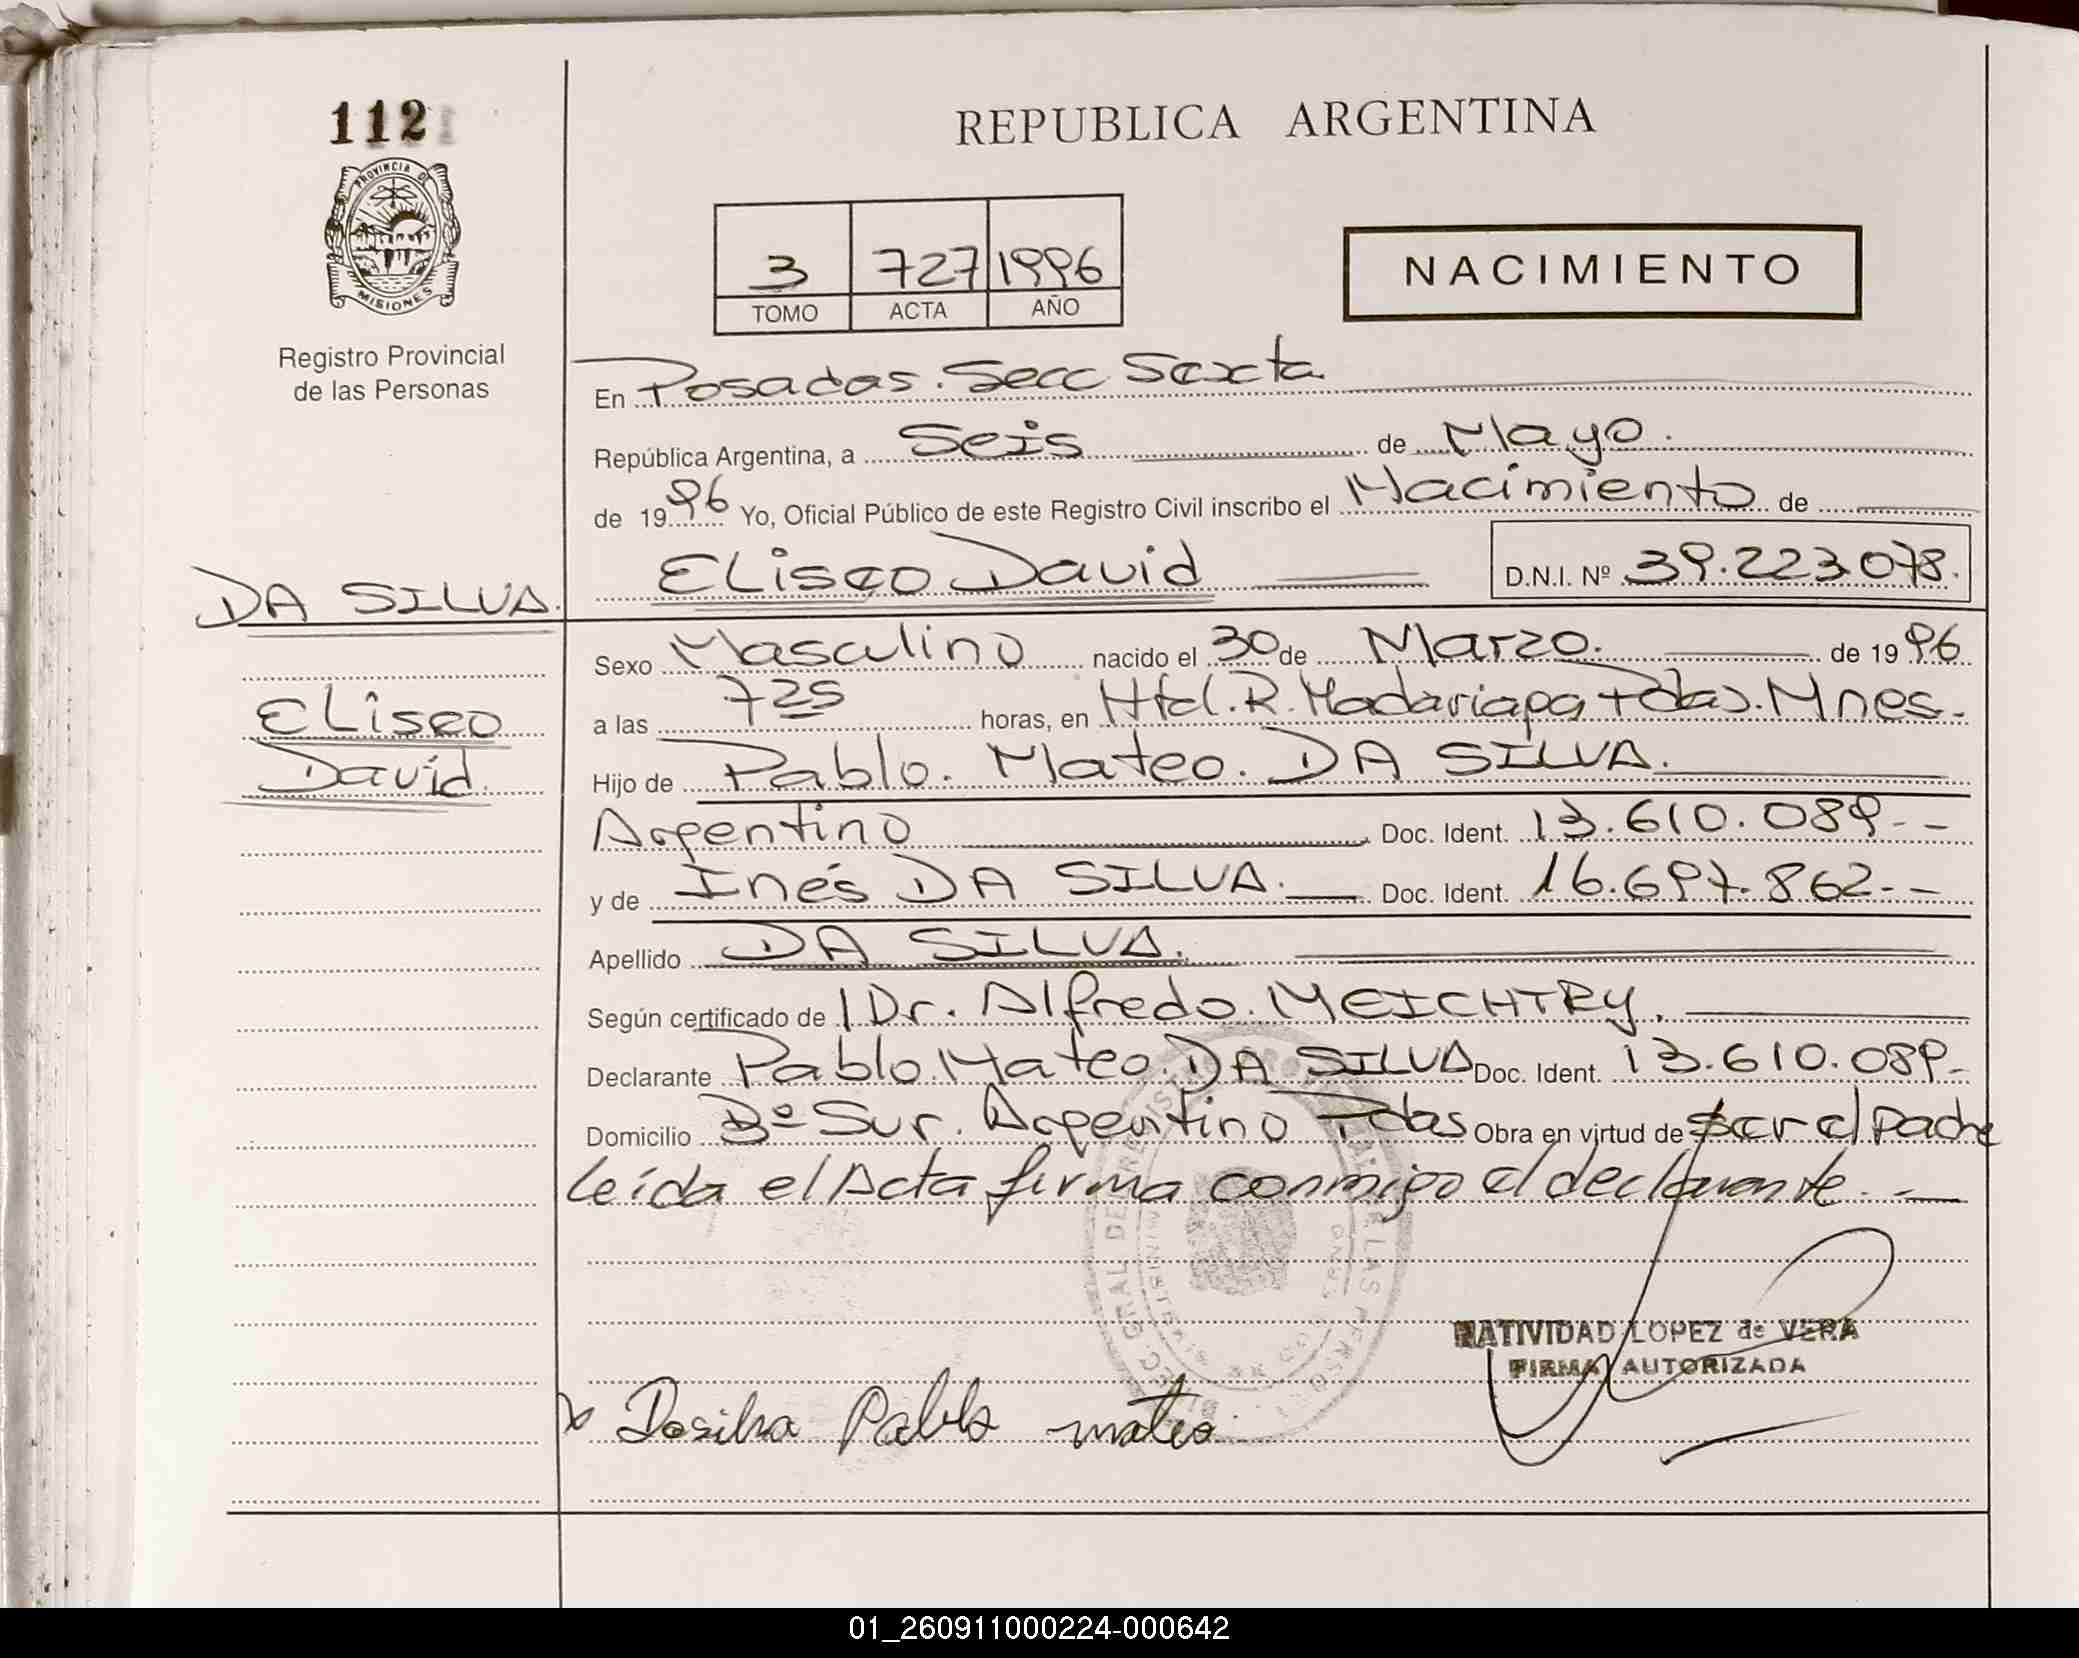 112
PROVINCIA DE
MISIONES
Registro Provincial
de las Personas
REPUBLICA ARGENTINA
3 727 1996
TOMO ACTA AÑO
NACIMIENTO
En Posadas. Secc Sexta
República Argentina, a Seis de Mayo.
de 1996 Yo, Oficial Público de este Registro Civil inscribo el Nacimiento de
ELiseo David D.N.I. Nº 39.223.078.
DA SILVA.
ELiseo
David.
Sexo Masculino nacido el 30 de Marzo. de 1996
a las 7 25 horas, en Htal. R. Madariaga Pdas. Mnes.
Hijo de Pablo. Mateo. DA SILVA.
Argentino Doc. Ident. 13.610.089.-
y de Inés DA SILVA. Doc. Ident. 16.697.862.-
Apellido DA SILVA.
Según certificado de Dr. Alfredo. MEICHTRY.
Declarante Pablo. Mateo. DA SILVA Doc. Ident. 13.610.089.-
Domicilio Bº Sur. Argentino Pdas Obra en virtud de ser el padre
Leída el Acta firma conmigo el declarante.-
NATIVIDAD LOPEZ de VERA
FIRMA AUTORIZADA
Dasilva Pablo mateo
01_260911000224-000642